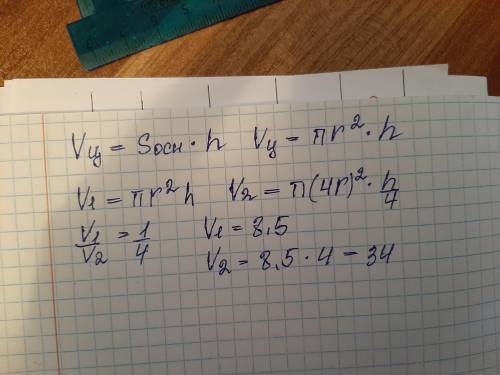 Vц = Sосн · h    Vц = πr² · h
V1 = πr² h    V2 = π(4r)² · h/4
V1/V2 = 1/4    V1 = 8,5
V2 = 8,5 · 4 = 34